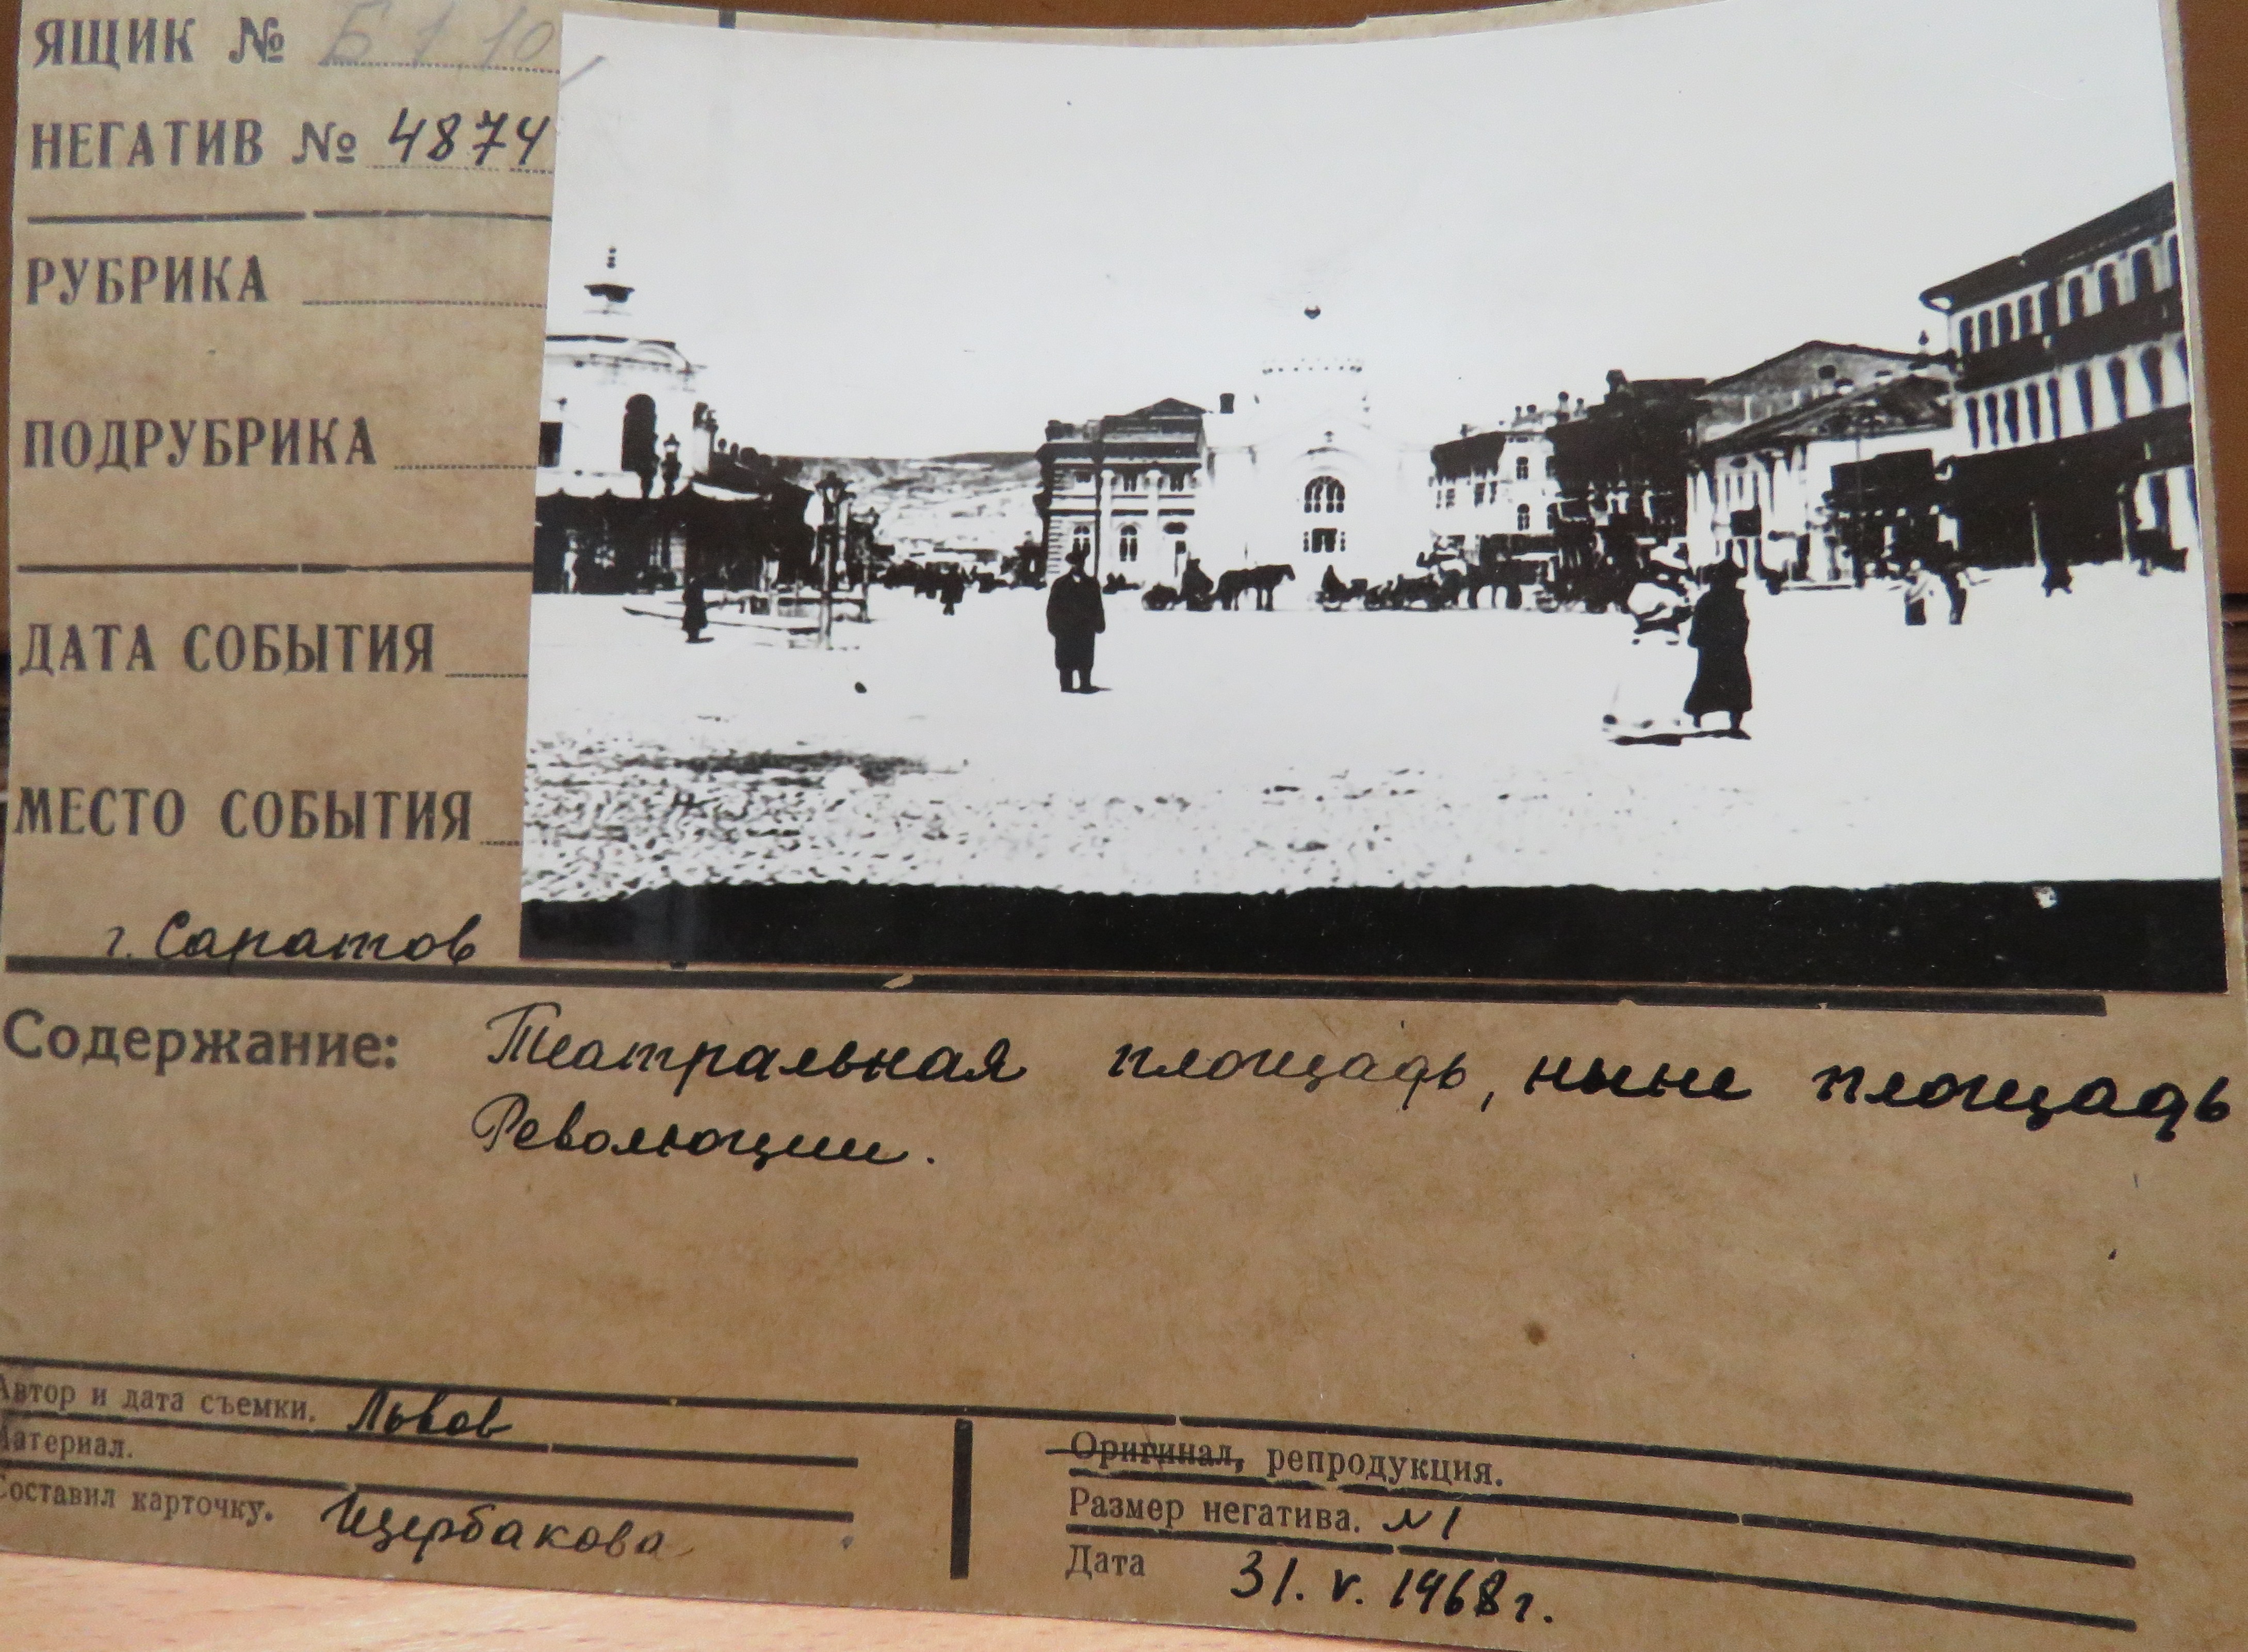 ЯЩИК № Б 1 10
НЕГАТИВ № 4874
РУБРИКА
ПОДРУБРИКА
ДАТА СОБЫТИЯ
МЕСТО СОБЫТИЯ
г. Саратов
Содержание: Театральная площадь, ныне площадь
Революции.
Автор и дата съемки. Львов
Материал.
Составил карточку. Щербакова
Оригинал, репродукция.
Размер негатива. N1
Дата 31. V. 1968 г.